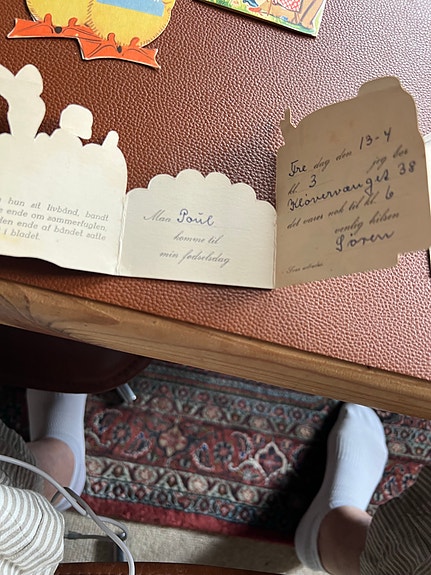 hun sit livbånd, bandt
e ende om sommerfuglen,
den ende af båndet satte
i bladet.
Man Poul
komme til
min fødselsdag
Fre dag den 13-4
kl. 3 jeg bor
Kløvervænget 38
det varer nok til kl. 6
venlig hilsen
Søren
Svar udbedes